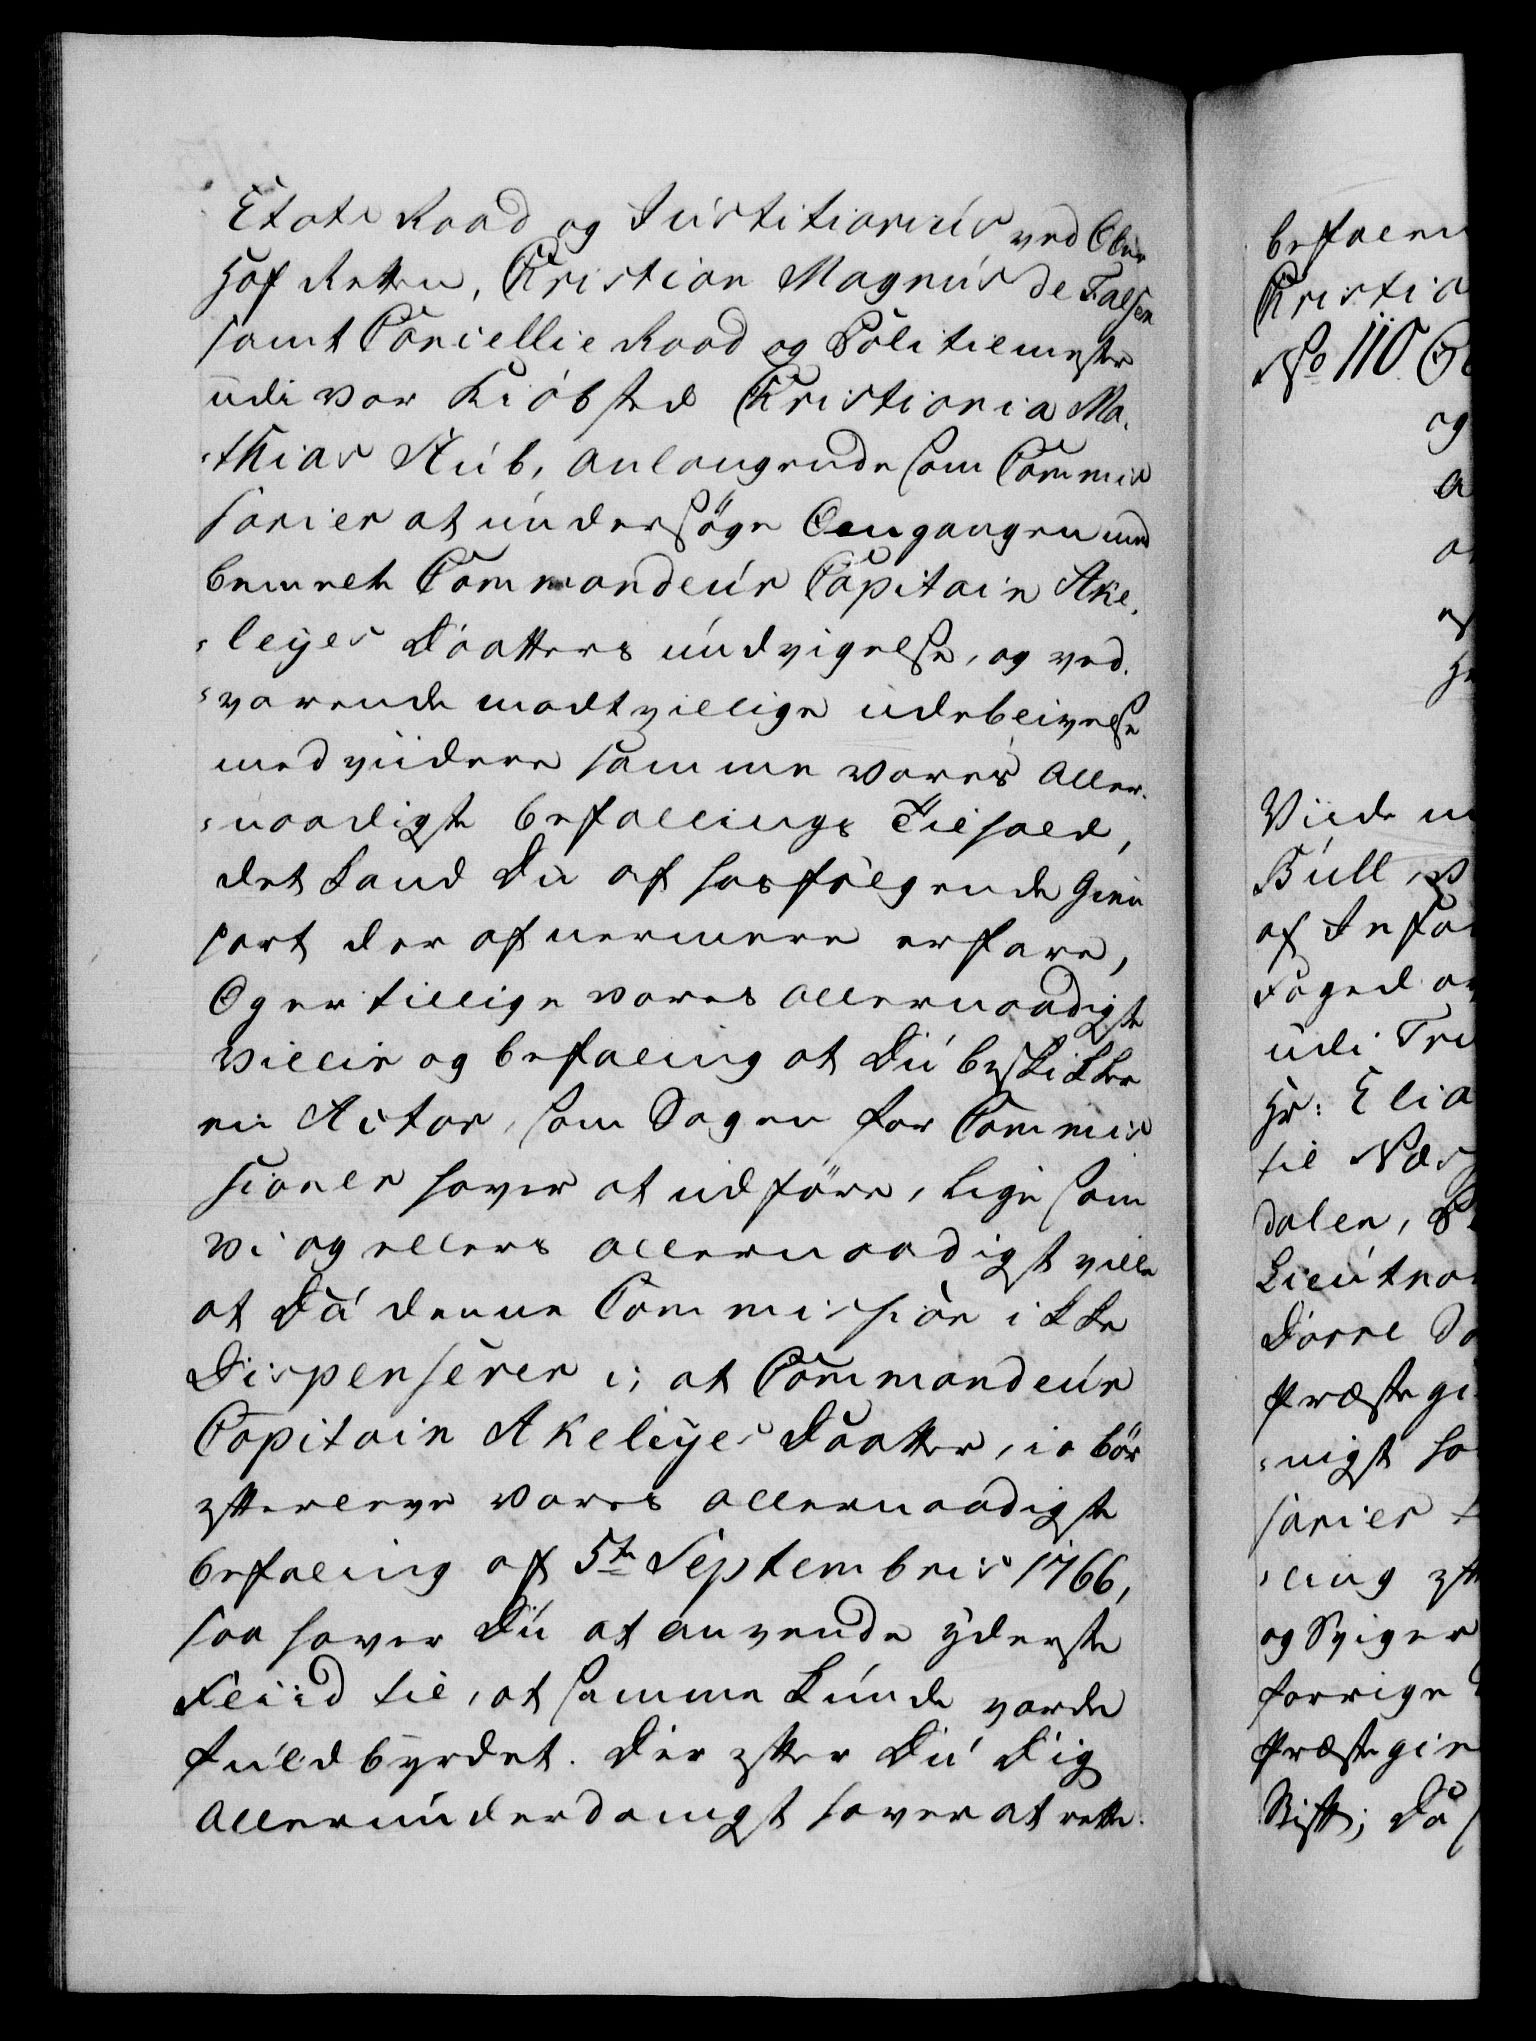 Etats Raad og Justitiarius ved Ober
Hof Retten, Christian Magnus de Falsen
samt Cancellie Raad og Politiemester
udi vor Kiöbsted Christiania Ma-
-thias Stub, anlangende som Commis
sarier at undersöge Omgangen med
bemelte Commandeur Capitain Ake-
-leyes Daatters undvigelse, og ved-
-varende modtvillige udeblivelse
med viidere samme vores Aller-
-naadigste befallings Jndhold,
det kand Du af hosfölgende Gien
part der af nermere erfare,
Og er tillige vores allernaadigste
villie og befaling at Du beskikker
en Actor, som Sagen for Commis
sionen haver at udföre, lige som
vi og ellers allernaadigst ville
at da denne Commission ikke
Dispenserer i, at Commandeur
Capitain Akeleyes Daatter, io bör
efterleve vores allernaadigste
befaling af 5te Septembris 1766,
saa haver Du at anvende yderste
Fliid til, at samme kunde vorde
fuldbyrdet. Der efter Du Dig
allerunderdanigst haver at rette.
befalen
Christia
No 110
og
a
Viide m
Bull, 
af Jnfan
Foged o
udi Tru
Hr: Elia
til Nær
dalen, 
Lieutnan
Dorre So
Præstegi
-nigst ha
sarier 
-ling eft
og Sviger
forrige
Præstegie
Stift; Da